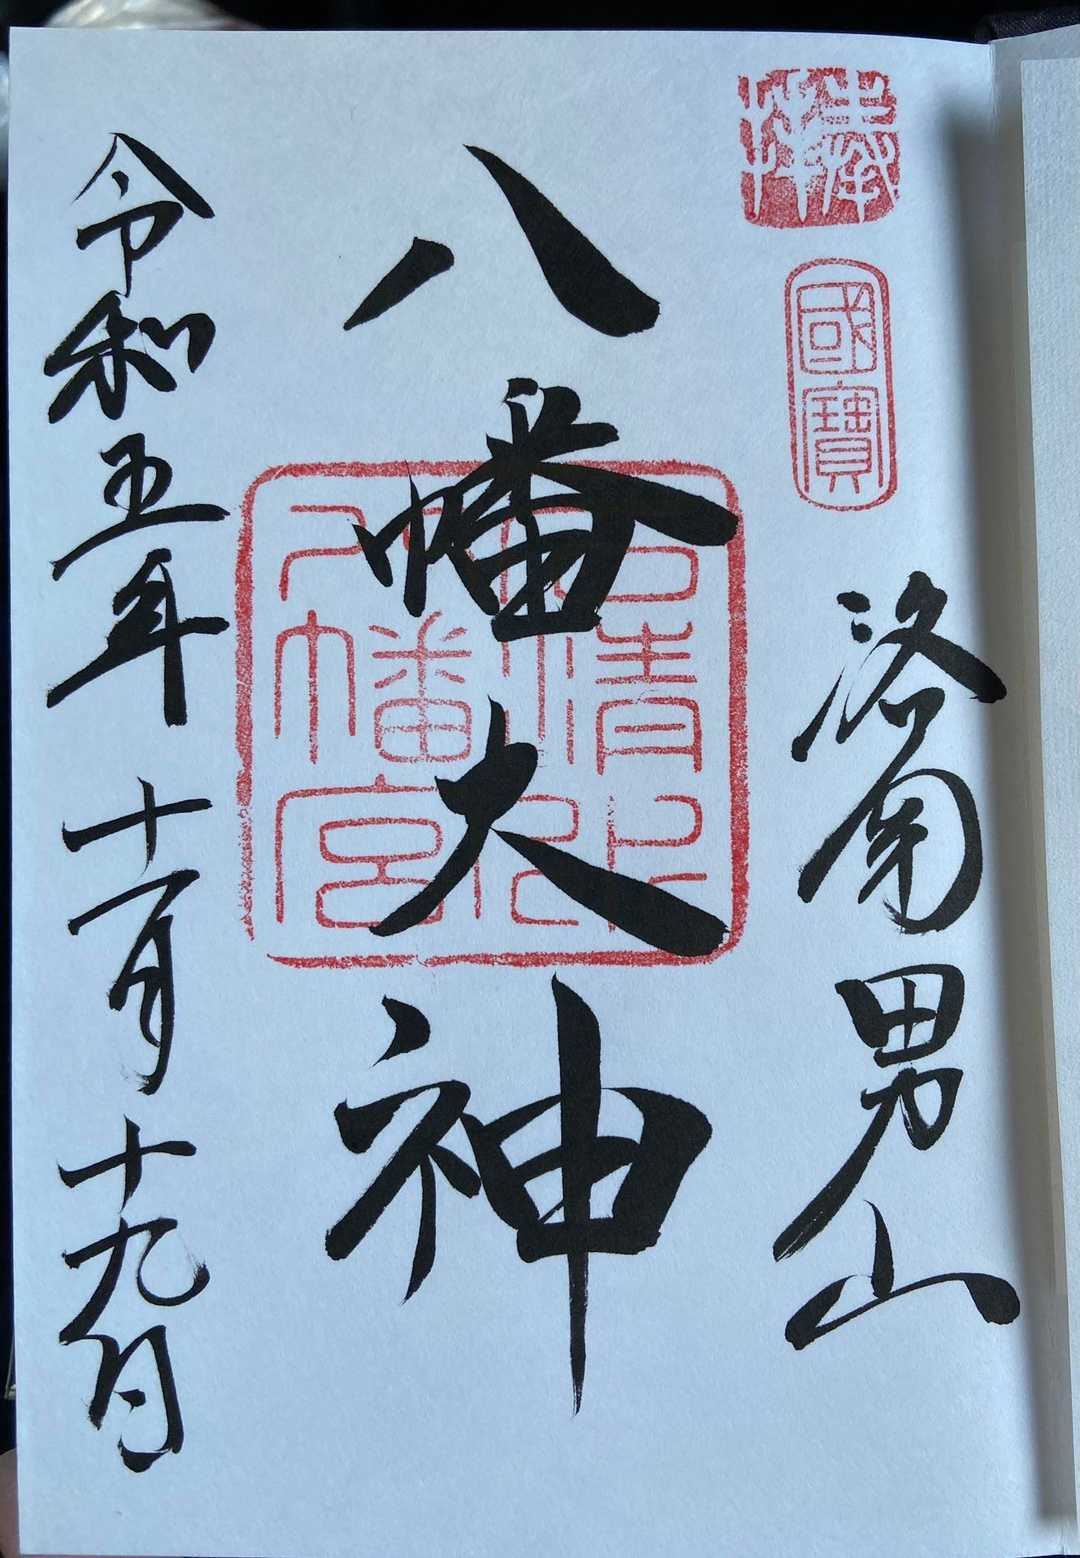 奉拝
國寶
洛南男山
八幡大神
石清水
八幡宮
令和五年十一月十九日